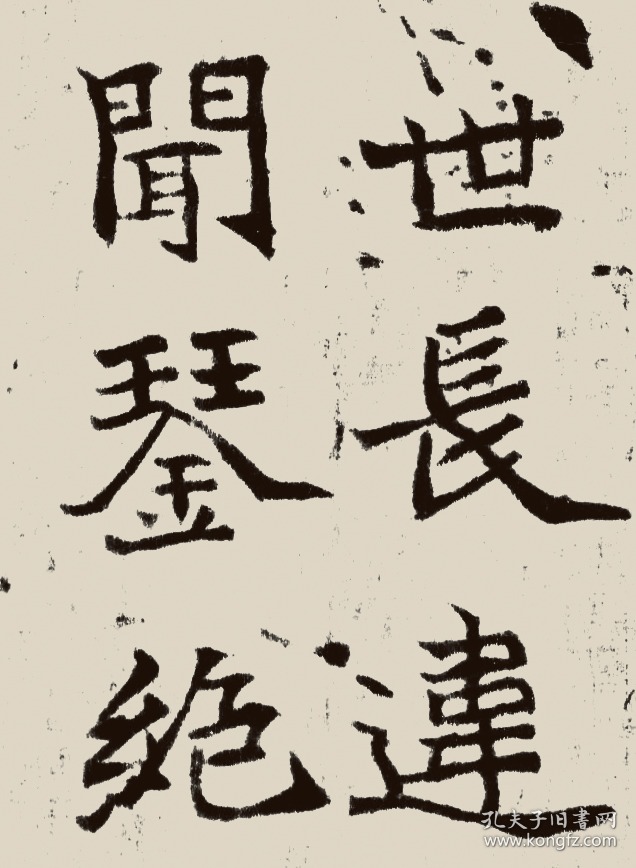 世長違
聞琴絶
孔夫子旧書网
www.kongfz.com